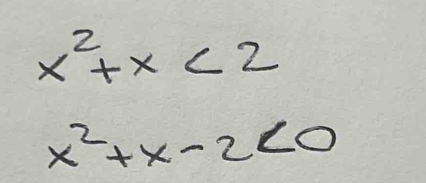 x²+x<2
x²+x-2<0